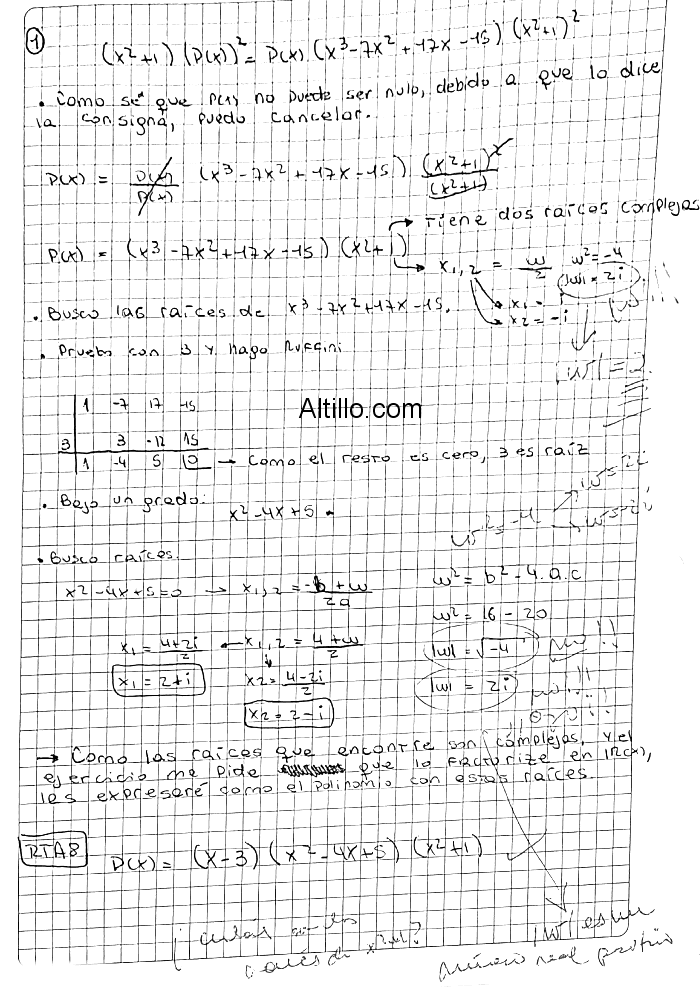 ①
(x²+1) (P(x))² = P(x) (x³-7x²+17x-15) (x²+1)²
• Como se que P(x) no puede ser nulo, debido a que lo dice
la consigna, puedo cancelar.
P(x) = P(x)/P(x) (x³-7x²+17x-15) (x²+1)²/(x²+1)
P(x) = (x³-7x²+17x-15) (x²+1) → Tiene dos raíces complejas
→ x1,2 = w/2 w² = -4
|w| = 2i
x1 = i
x2 = -i
|w| = 2
• Busco las raíces de x³-7x²+17x-15.
• Pruebo con 3 y hago Ruffini
1 -7 17 -15
3 3 -12 15
1 -4 5 0 → Como el resto es cero, 3 es raíz
Altillo.com
• Bajo un grado:
x²-4x+5
w²=-4 → w=2i
→ w=-2i
• Busco raíces.
x²-4x+5=0 → x1,2 = -b+w/2a
w² = b²-4.a.c
w² = 16-20
|w| = √-4 no!!
|w| = 2i no!!!
x1 = 4+2i/2 ← x1,2 = 4+w/2
x1 = 2+i
x2 = 4-2i/2
x2 = 2-i
→ Como las raíces que encontre son complejas, y el
ejercicio me pide que lo factorize en IR(x),
les expresaré como el polinomio con estas raíces.
RTA8
P(x) = (x-3) (x²-4x+5) (x²+1) ✓
¿cuáles son las
raíces de x²+1?
|w| es un
número real positivo